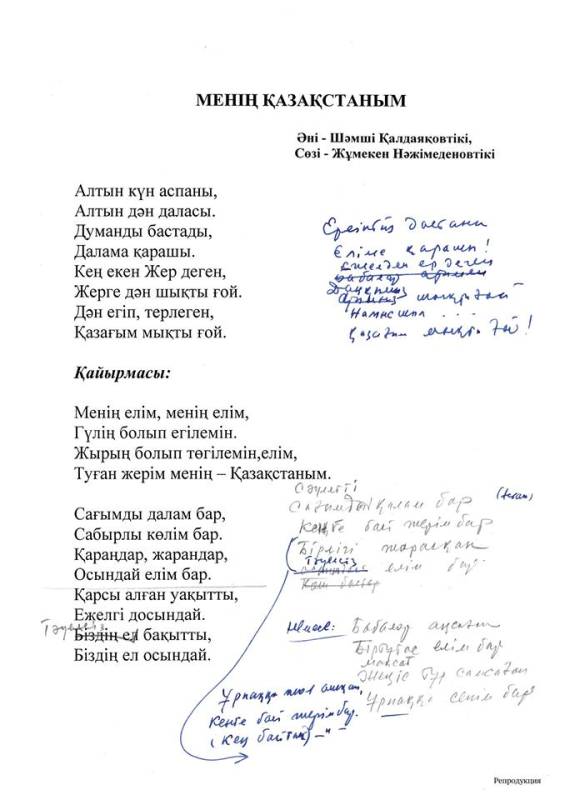 МЕНІҢ ҚАЗАҚСТАНЫМ
Әні - Шәмші Қалдаяқовтікі,
Сөзі - Жұмекен Нәжімеденовтікі
Алтын күн аспаны,
Алтын дән даласы.
Думанды бастады,
Далама қарашы.
Кең екен Жер деген,
Жерге дән шықты ғой.
Дән егіп, терлеген,
Қазағым мықты ғой.
Ерліктің дастаны
Еліме қарашы!
Ежелден ер деген
Даңқымыз шықты ғой
Намысын ...
Қазағым мықты ғой!
Қайырмасы:
Менің елім, менің елім,
Гүлің болып егілемін.
Жырың болып төгілемін,елім,
Туған жерім менің – Қазақстаным.
Сағымды далам бар,
Сабырлы көлім бар.
Қараңдар, жарандар,
Осындай елім бар.
Қарсы алған уақытты,
Ежелгі досындай.
Тәуелсіз
Біздің ел бақытты,
Біздің ел осындай.
Сәулетті
қалам бар
Кеңге бай жерім бар
Бірлігі жарасқан
Тәуелсіз
елім бар
Немесе: Бабалар аңсаған
Біртұтас елім бар
мақсат
Ұрпаққа сенім бар
Ұрпаққа жол ашқан,
Кеңге бай жерім бар.
(Кең байтақ) -"-
Репродукция